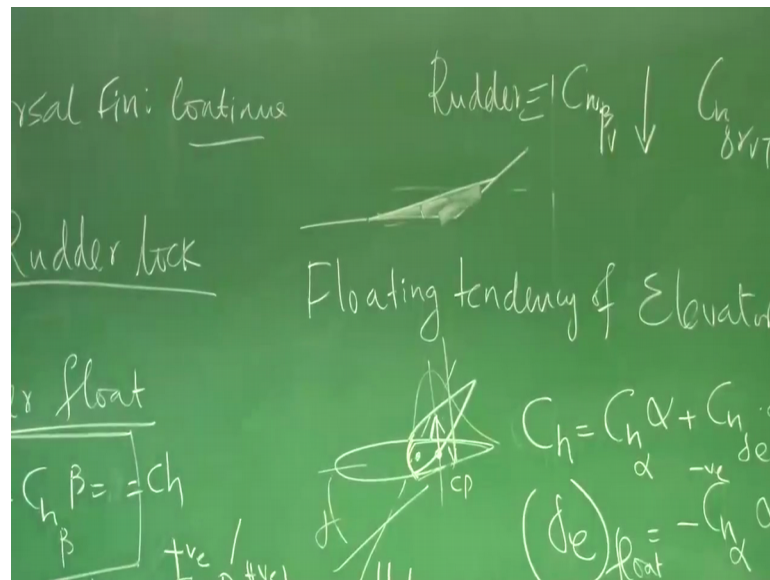 rsal Fin: Continue
Rudder ≡ Cnβv ↓ Cnδrv
Rudder lock
Floating tendency of Elevator
er float
Ch = Chα α + Chδe
-ve
Chβ β = = Ch
CP
(δe)float = -Chα α
+ve